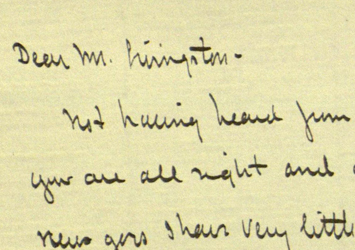 Dear Mr. Livingston-
Not having heard from
you are all right and
news goes I have very little